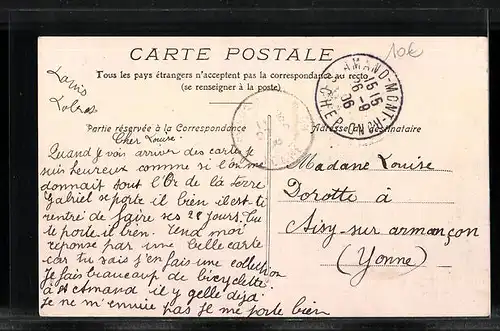 CARTE POSTALE
Tous les pays étrangers n'acceptent pas la correspondance au recto
(se renseigner à la poste)
Partie réservée à la Correspondance
Adresse du destinataire
10€
AMAND-MONT-ROND
15 15
26-9
06
CHER
Cher Louise:
Quand je vois arriver des cartes je
suis heureux comme si l'on me
donnait tout l'Or de la terre
Gabriel se porte il bien il est-il
rentré de faire ses 28 jours. Tu
te porte il bien. Tenez moi
réponse par une belle carte
car tu sais j'en fais une collection
je fais beaucoup de bicyclette
à St Amand il y gelle déjà.
je ne m'ennuie pas je me porte bien
Madame Louise
Dorotte à
Aisy-sur-armançon
(Yonne)